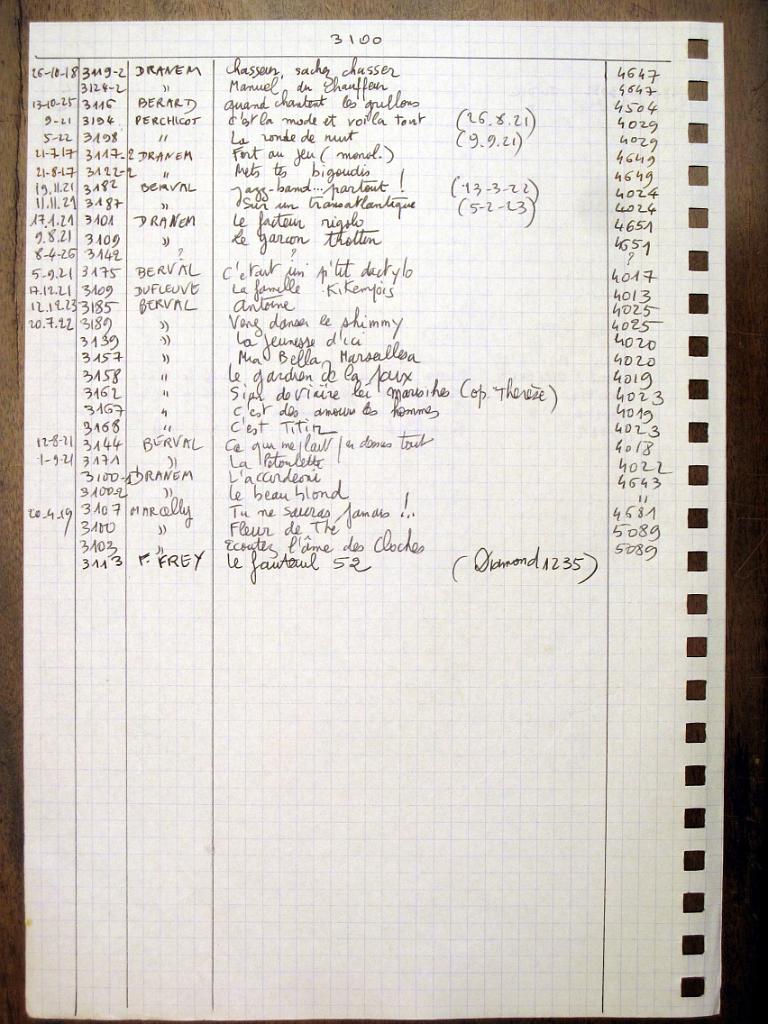 3100
26-10-18 3119-2 DRANEM Chasseur, sachez chasser 4647
3124-2 " Manuel du Chauffeur 4647
13-10-25 3116 BERARD quand chantent les grillons 4504
9-21 3194 PERCHICOT C'est la mode et voilà tout (26.8.21) 4029
5-22 3198 " La ronde de nuit (9.9.21) 4029
21-7-17 3117-2 DRANEM Fort au jeu (monol.) 4649
21-8-17 3122-2 " Mets tes bigoudis 4649
19.11.21 3182 BERVAL Jazz-band... partout ! (13-3-22) 4024
11.11.21 3187 " Sur un transatlantique (5-2-23) 4024
17.1.21 3101 DRANEM Le facteur rigolo 4651
9.8.21 3109 " Le garçon trottin 4651
8-4-26 3142 ? ? ?
5-9.21 3175 BERVAL C'était un p'tit dactylo 4017
17.12.21 3109 DUFLEUVE La famille Kikempois 4013
12.12.23 3185 BERVAL Antoine 4025
20.7.22 3189 " Venez danser le shimmy 4025
3139 " La jeunesse d'ici 4020
3157 " Mia Bella Marsellesa 4020
3158 " Le gardien de la 4019
3162 " (op. Therèse) 4023
3167 " C'est des amours les hommes 4019
3168 " C'est Titin 4023
12-8-21 3144 BERVAL Ce que me faut j'en donne tout 4018
1-9-21 3171 " La 4022
3100-1 DRANEM L'accordeoni 4643
3100-2 " Le beau blond "
20.4.19 3107 MARCELLY Tu ne sauras jamais !.. 4681
3100 " Fleur de Thé 5089
3103 " Ecoutez l'âme des Cloches 5089
3113 F. FREY Le fauteuil 52 (Diamond 1235)